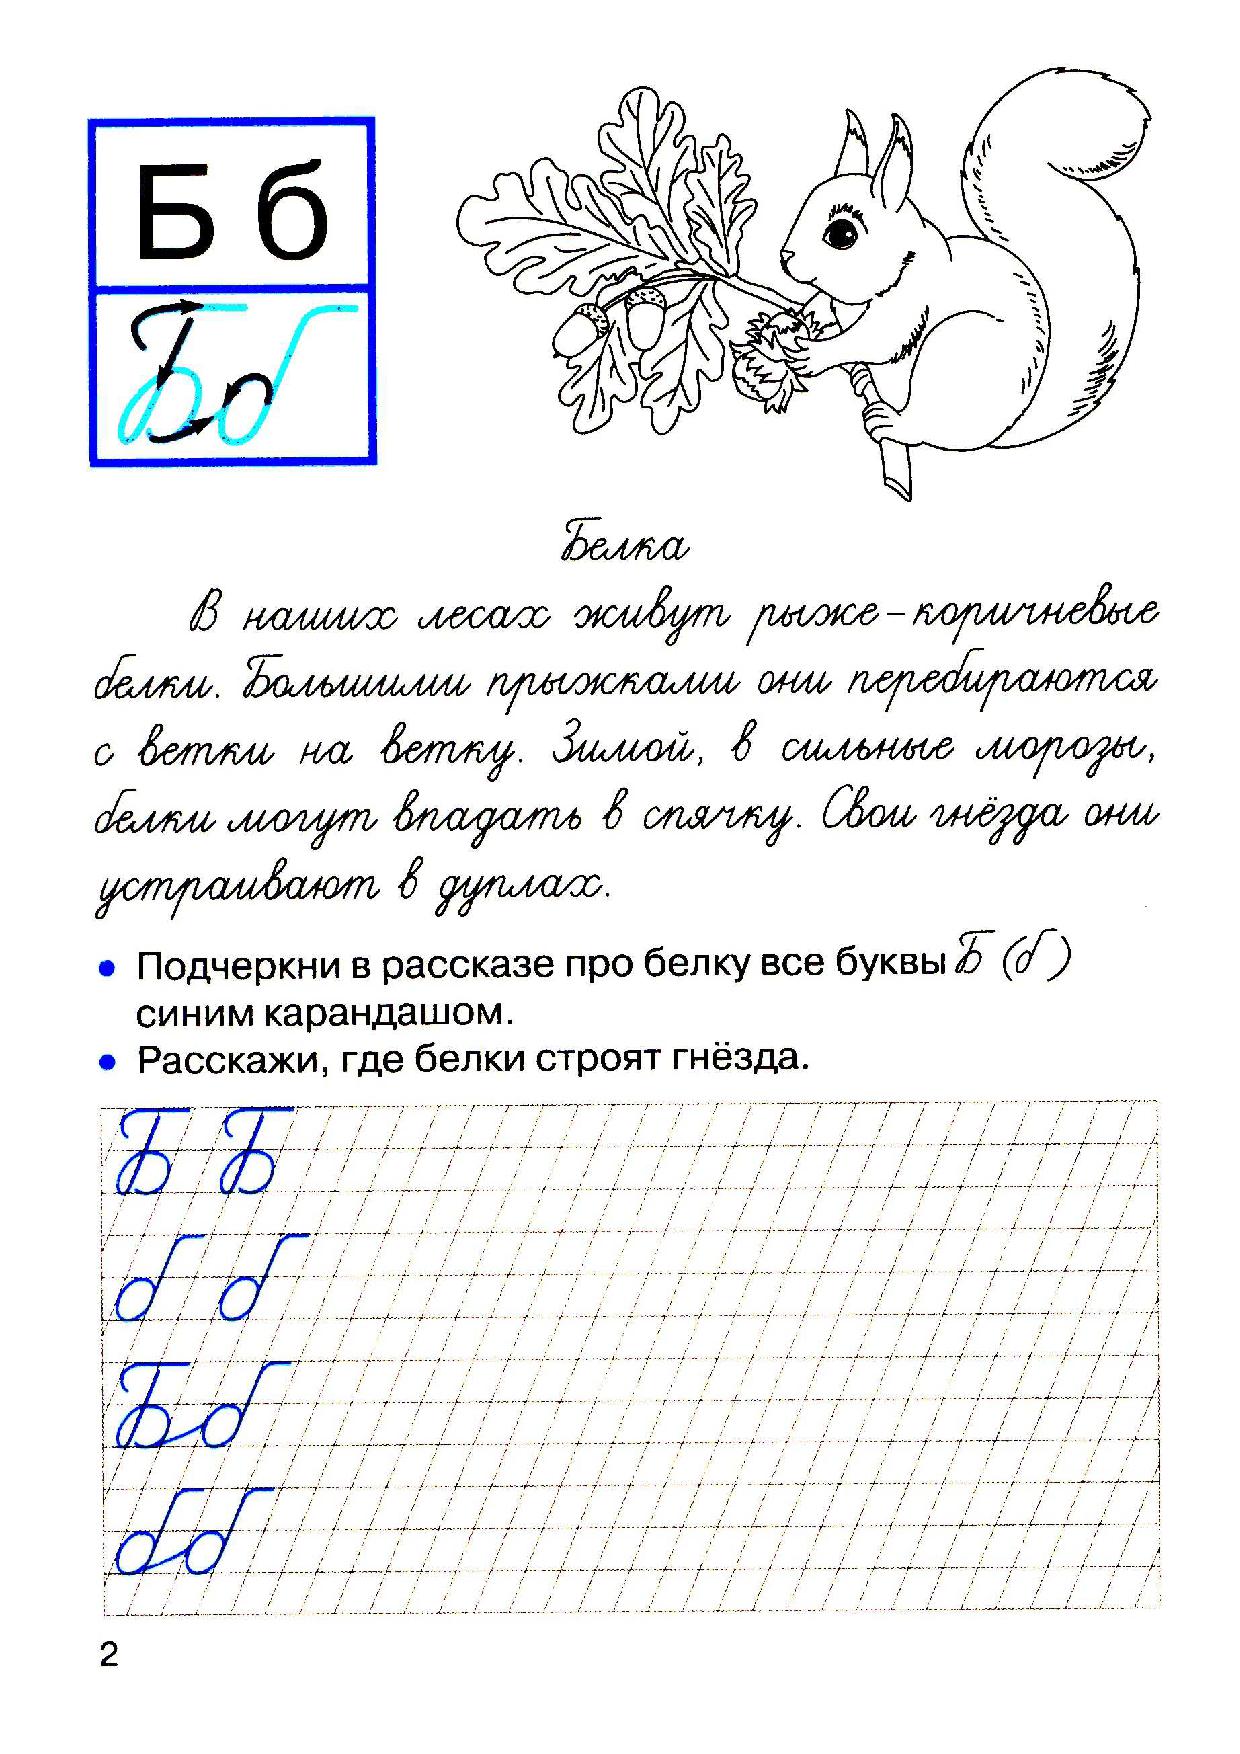 Б б
Б б
Белка
В наших лесах живут рыже-коричневые
белки. Большими прыжками они перебираются
с ветки на ветку. Зимой, в сильные морозы,
белки могут впадать в спячку. Свои гнёзда они
устраивают в дуплах.
• Подчеркни в рассказе про белку все буквы Б (б)
синим карандашом.
• Расскажи, где белки строят гнёзда.
Б Б
б б
Бб
бб
2